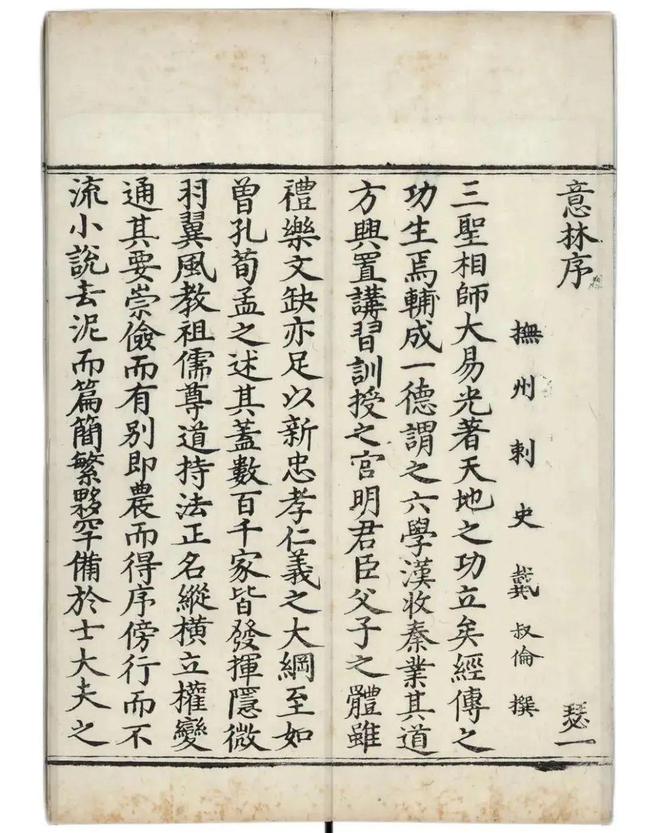 意林序
撫州刺史戴叔倫撰
三聖相師大易光著天地之功立矣經傳之
功生焉輔成一德謂之六學漢收秦業其道
方興置講習訓授之官明君臣父子之體雖
禮樂文缺亦足以新忠孝仁義之大綱至如
曾孔荀孟之述其蓋數百千家皆發揮隱微
羽翼風教祖儒尊道持法正名縱橫立權變
通其要崇儉而有別即農而得序傍行而不
流小說去泥而篇簡繁夥罕備於士大夫之
瑟一